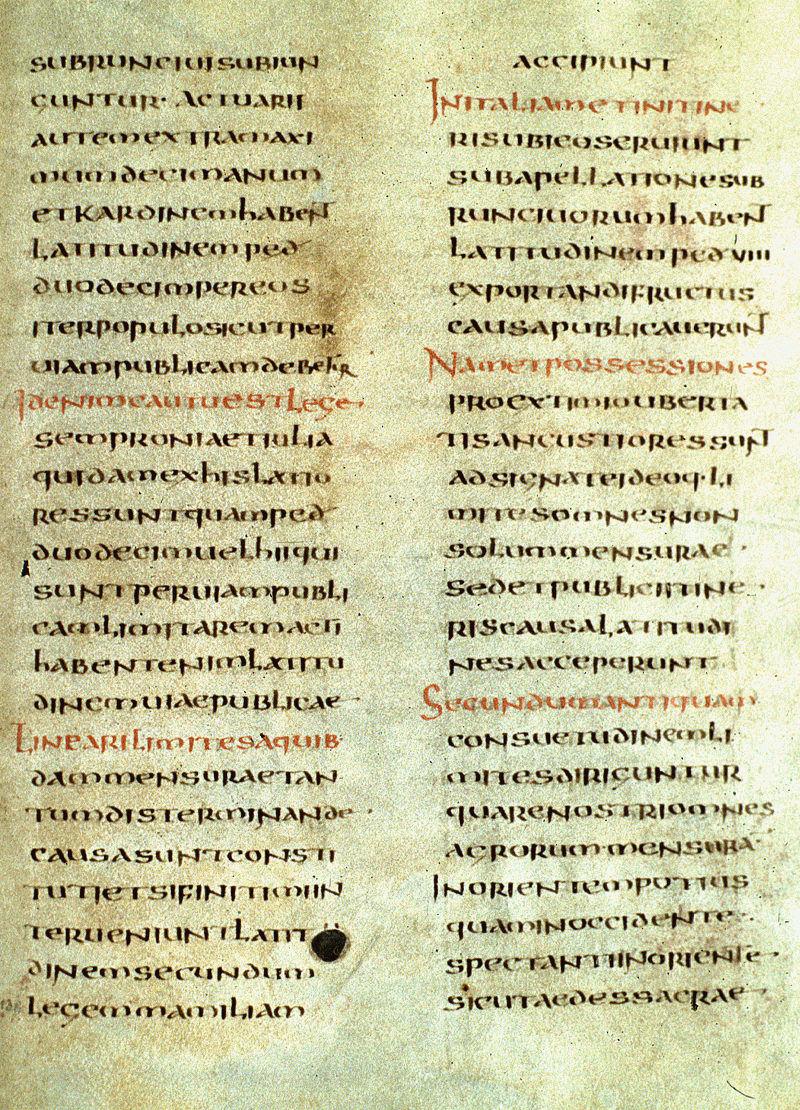 SUBRUNCIUISUBIUN
CUNTUR· ACTUARII
AUTEMEXTRAMAXI
MUMDECIMANUM
ETKARDINEMHABEN̅
LATITUDINEMPED
DUODECIMPEREOS
ITERPOPULOSICUTPER
UIAMPUBLICAMDEBETUR
IDENIMCAUTUESTLEGE·
SEMPRONIAETIULIA
QUIDAMEXHISLATIO
RESSUNTQUAMPED
DUODECIMUELHIIQUI
SUNTPERUIAMPUBLI
CAMLIMITAREMACTI
HABENTENIMLATITU
DINEMUIAEPUBLICAE
LINEARILIMITESAQUIB·
DAMMENSURAETAN
TUMDISTERMINANDE·
CAUSASUNTCONSTI
TUTIETSIFINITIMIIN
TERUENIUNTLATIT
DINEMSECUNDUM
LEGEMMAMILIAM
ACCIPIUNT
INITALIAMETINITINE·
RISUBICOSERUIUNT
SUBAPELLATIONESUB
RUNCIUORUMHABEN̅
LATITUDINEMPEDVIII
EXPORTANDIFRUCTUS
CAUSAPUBLICAUERUN̅
NAMETPOSSESSIONES
PROEXTIMIOUBERTA
TISANGUSTIORESSUN̅
ADSIGNATEIDEOQ·LI
MITESOMNESNON
SOLUMMENSURAE·
SEDETPUBLICIITINE·
RISCAUSALATITUDI
NESACCEPERUNT
SECUNDUMANTIQUAM
CONSUETUDINEMLI
MITESDIRIGUNTUR
QUARENOSTRIOMNES
AGRORUMMENSURA·
INORIENTEMPOTIUS
QUAMINOCCIDENTE·
SPECTANTIINORIENTE·
SICUTAEDESSACRAE·